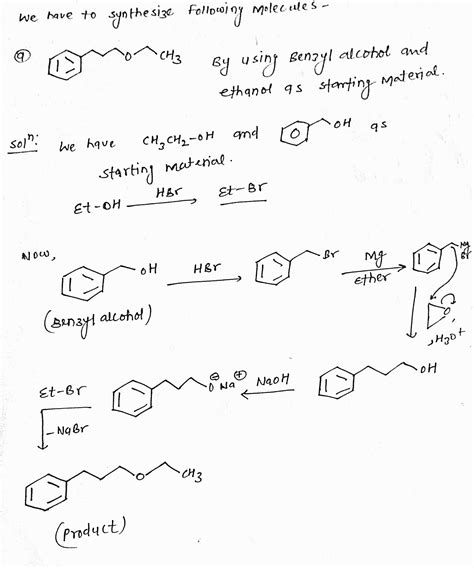 We have to synthesize following molecules -
(a) O CH3 By using Benzyl alcohol and
ethanol as starting material.
Solⁿ: We have CH3CH2-OH and OH as
starting material.
Et-OH HBr Et-Br
Now,
OH HBr Br Mg Ether Mg Br
(Benzyl alcohol)
O , H3O+
Et-Br O⊖ Na⊕ NaOH OH
-NaBr
O CH3
(Product)